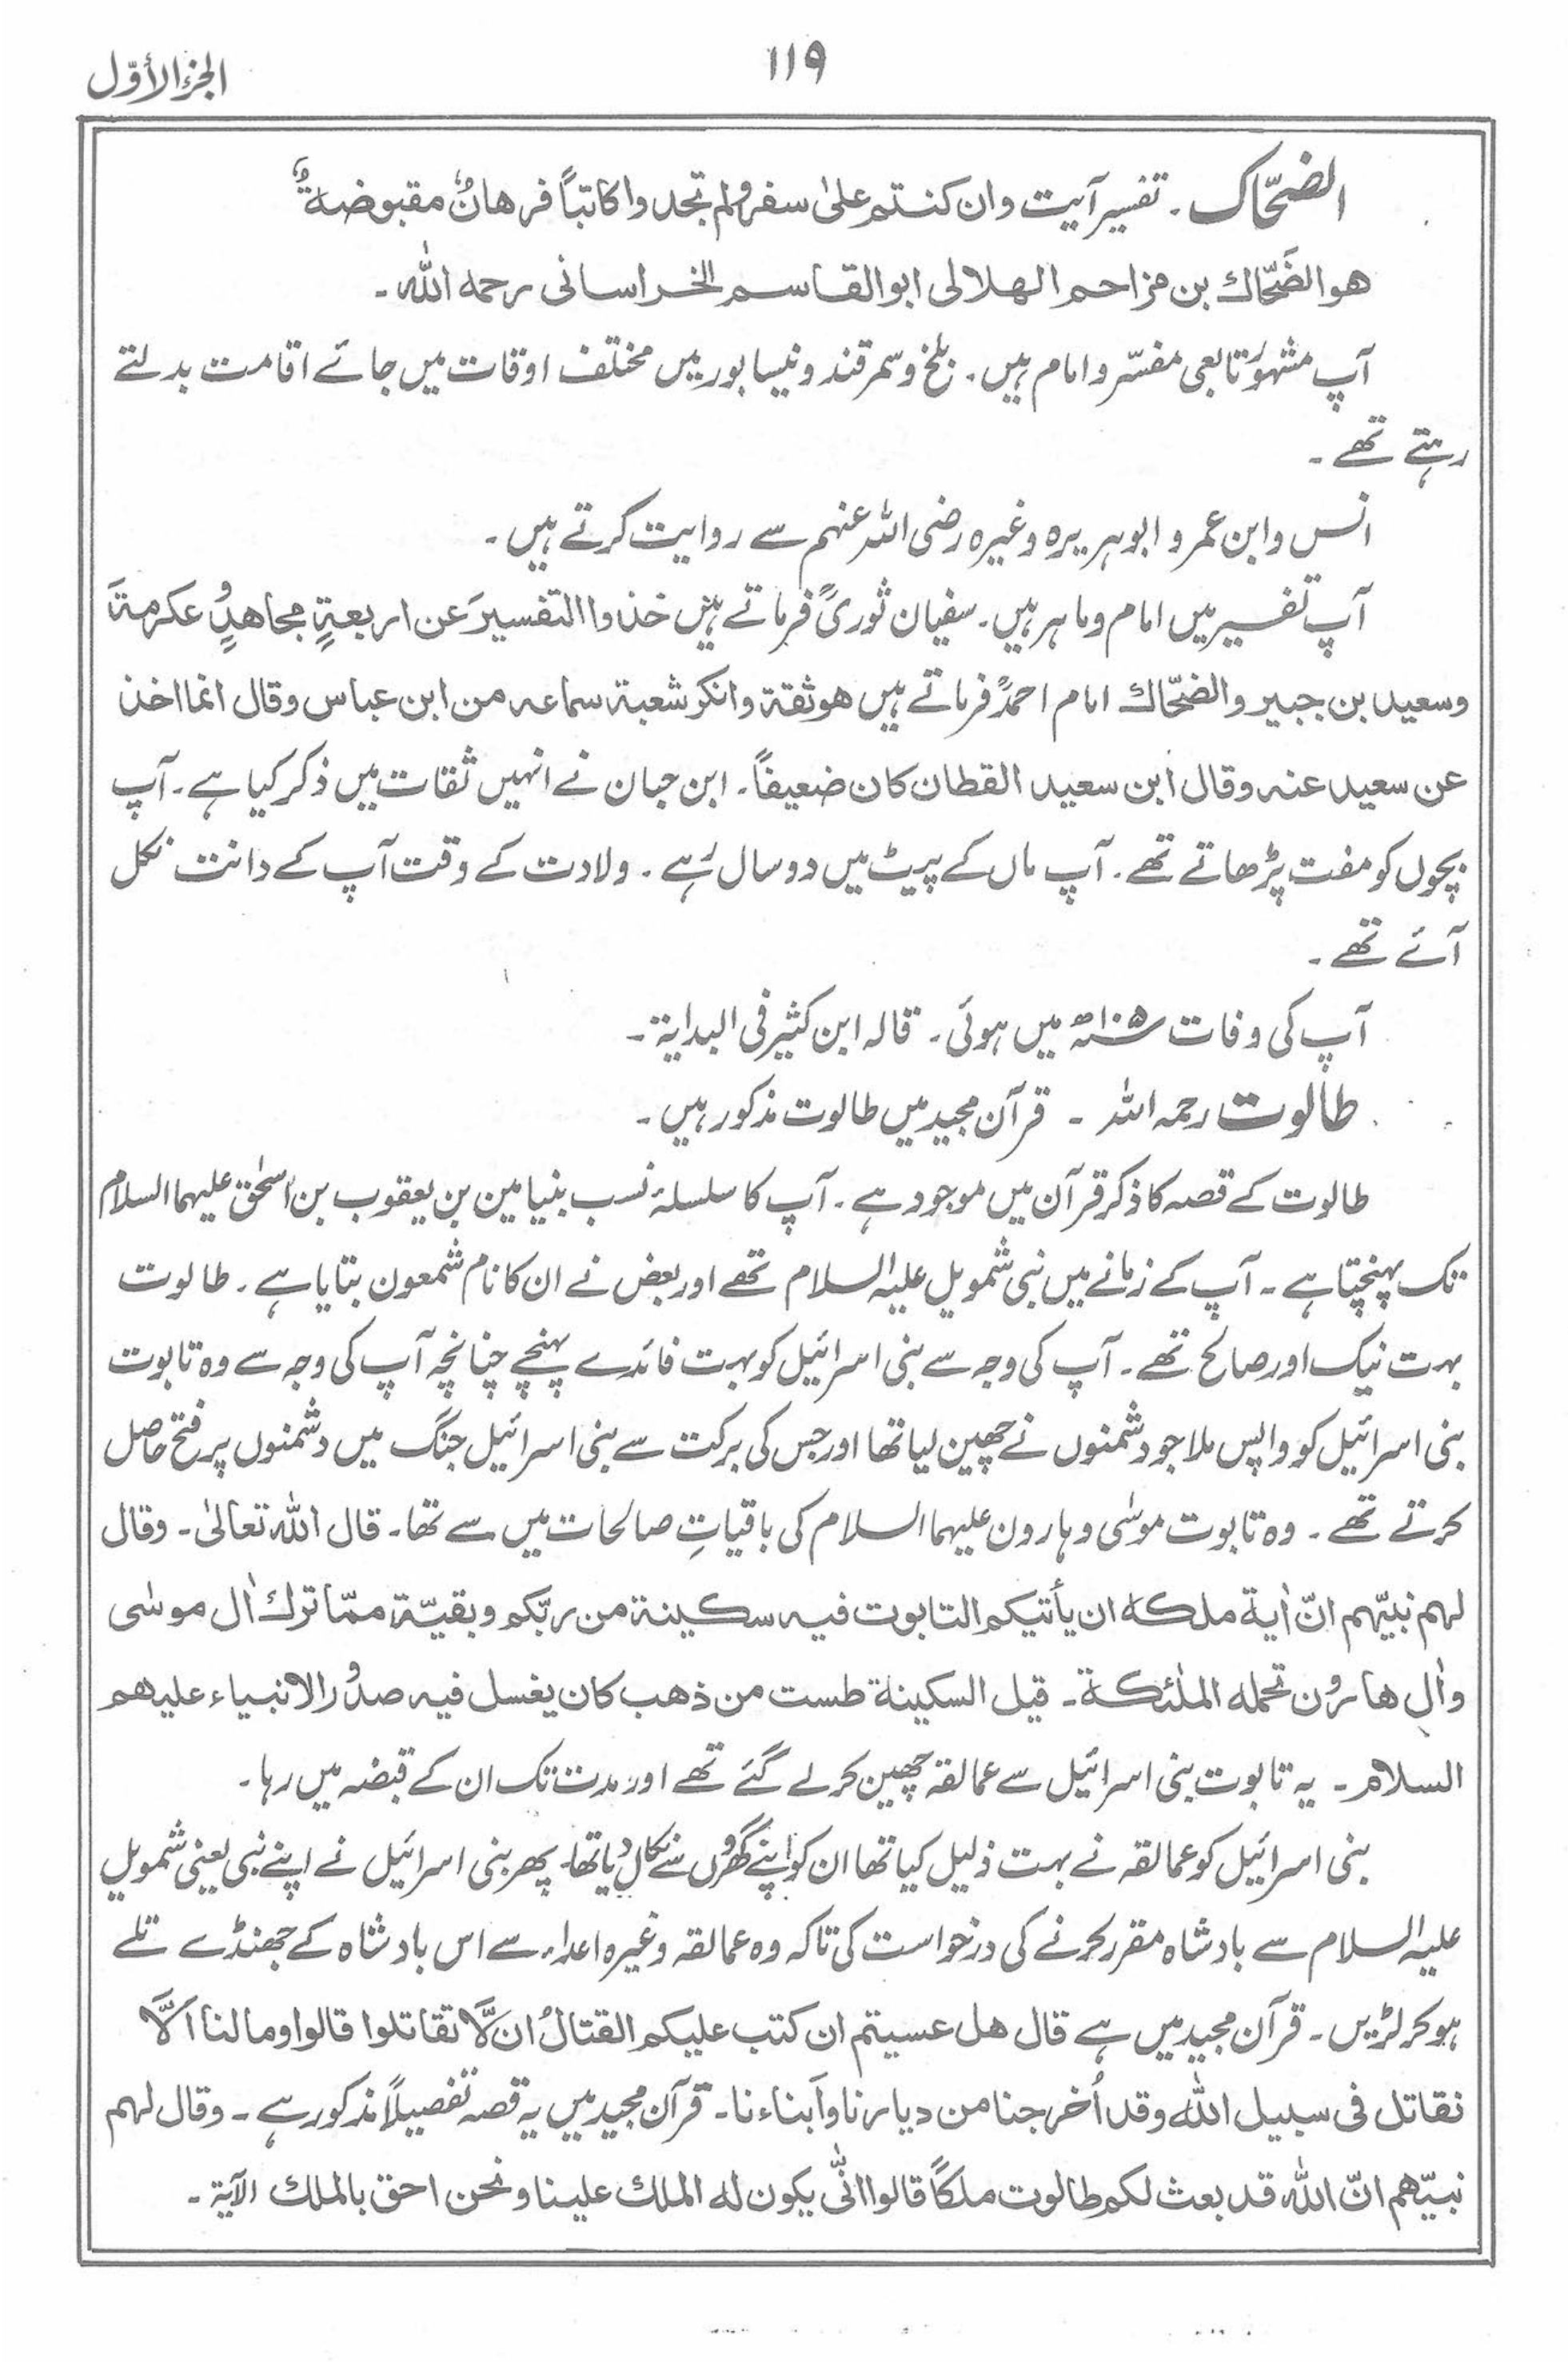 ۱۱۹
الجزء الأوّل
الضحّاک ۔ تفسیر آیت وان کنتم علیٰ سفر ولم تجدوا کاتباً فرھانٌ مقبوضۃٌ
ھو الضَحّاك بن مزاحم الھلالی ابوالقاسم الخراسانی رحمہ اللہ ۔
آپ مشہور تابعی مفسّر و امام ہیں ۔ بلخ و سمرقند و نیسابور میں مختلف اوقات میں جائے اقامت بدلتے
رہتے تھے ۔
انس و ابن عمر و ابوہریرہ وغیرہ رضی اللہ عنہم سے روایت کرتے ہیں ۔
آپ تفسیر میں امام و ماہر ہیں ۔ سفیان ثوریؒ فرماتے ہیں خذوا التفسیرَ عن اربعۃٍ مجاھدٍ و عکرمۃَ
وسعید بن جبیر والضحّاك امام احمدؒ فرماتے ہیں ھو ثقۃ وانکر شعبۃ سماعہ من ابن عباس وقال انما اخذ
عن سعید عنہ وقال ابن سعید القطان کان ضعیفاً ۔ ابن حبان نے انہیں ثقات میں ذکر کیا ہے ۔ آپ
بچوں کو مفت پڑھاتے تھے ۔ آپ ماں کے پیٹ میں دو سال رہے ۔ ولادت کے وقت آپ کے دانت نکل
آئے تھے ۔
آپ کی وفات ۱۰۵ھ میں ہوئی ۔ قالہ ابن کثیر فی البدایۃ ۔
طالوت رحمہ اللہ ۔ قرآن مجید میں طالوت مذکور ہیں ۔
طالوت کے قصہ کا ذکر قرآن میں موجود ہے ۔ آپ کا سلسلۂ نسب بنیامین بن یعقوب بن اسحٰق علیہما السلام
تک پہنچتا ہے ۔ آپ کے زمانے میں نبی شمویل علیہ السلام تھے اور بعض نے ان کا نام شمعون بتایا ہے ۔ طالوت
بہت نیک اور صالح تھے ۔ آپ کی وجہ سے بنی اسرائیل کو بہت فائدے پہنچے چنانچہ آپ کی وجہ سے وہ تابوت
بنی اسرائیل کو واپس ملا جو دشمنوں نے چھین لیا تھا اور جس کی برکت سے بنی اسرائیل جنگ میں دشمنوں پر فتح حاصل
کرتے تھے ۔ وہ تابوت موسٰی و ہارون علیہما السلام کی باقیاتِ صالحات میں سے تھا ۔ قال اللہ تعالیٰ ۔ وقال
لہم نبیّہم انّ اٰیۃ ملکہ ان یأتیکم التابوت فیہ سکینۃ من ربّکم وبقیّۃ ممّا ترك اٰل موسٰی
واٰل ھارون تحملہ الملٰئکۃ ۔ قیل السکینۃ طست من ذھب کان یغسل فیہ صدور الانبیاء علیھم
السلام ۔ یہ تابوت بنی اسرائیل سے عمالقہ چھین کر لے گئے تھے اور مدت تک ان کے قبضہ میں رہا ۔
بنی اسرائیل کو عمالقہ نے بہت ذلیل کیا تھا ان کو اپنے گھروں سے نکال دیا تھا ۔ پھر بنی اسرائیل نے اپنے نبی یعنی شمویل
علیہ السلام سے بادشاہ مقرر کرنے کی درخواست کی تاکہ وہ عمالقہ وغیرہ اعداء سے اس بادشاہ کے جھنڈے تلے
ہو کر لڑیں ۔ قرآن مجید میں ہے قال ھل عسیتم ان کتب علیکم القتالُ ان لَّا تقاتلوا قالوا ومالنا اَلَّا
نقاتل فی سبیل اللہ وقد اُخرجنا من دیارنا واَبناءنا ۔ قرآن مجید میں یہ قصہ تفصیلاً مذکور ہے ۔ وقال لہم
نبیّھم انّ اللہ قد بعث لکم طالوت ملکاً قالوا انّٰی یکون لہ الملك علینا ونحن احق بالملك الآیۃ ۔